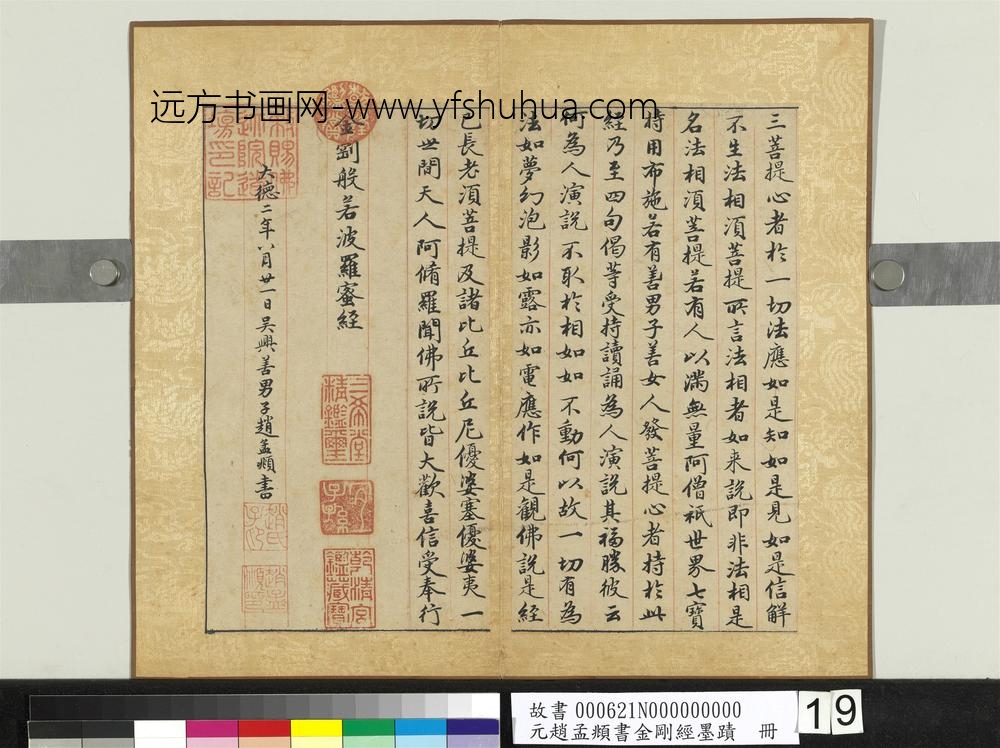 远方书画网-www.yfshuhua.com
三菩提心者於一切法應如是知如是見如是信解
不生法相須菩提所言法相者如来說即非法相是
名法相須菩提若有人以滿無量阿僧祇世界七寶
持用布施若有善男子善女人發菩提心者持於此
經乃至四句偈等受持讀誦為人演說其福勝彼云
何為人演說不取於相如如不動何以故一切有為
法如夢幻泡影如露亦如電應作如是觀佛說是經
已長老須菩提及諸比丘比丘尼優婆塞優婆夷一
切世間天人阿脩羅聞佛所說皆大歡喜信受奉行
金剛般若波羅蜜經
三希堂精鑑璽
宜子孫
乾清宮鑑藏寶
大德二年八月廿一日吳興善男子趙孟頫書
趙氏子昂
趙孟頫印
故書 000621N000000000
元趙孟頫書金剛經墨蹟 冊
19